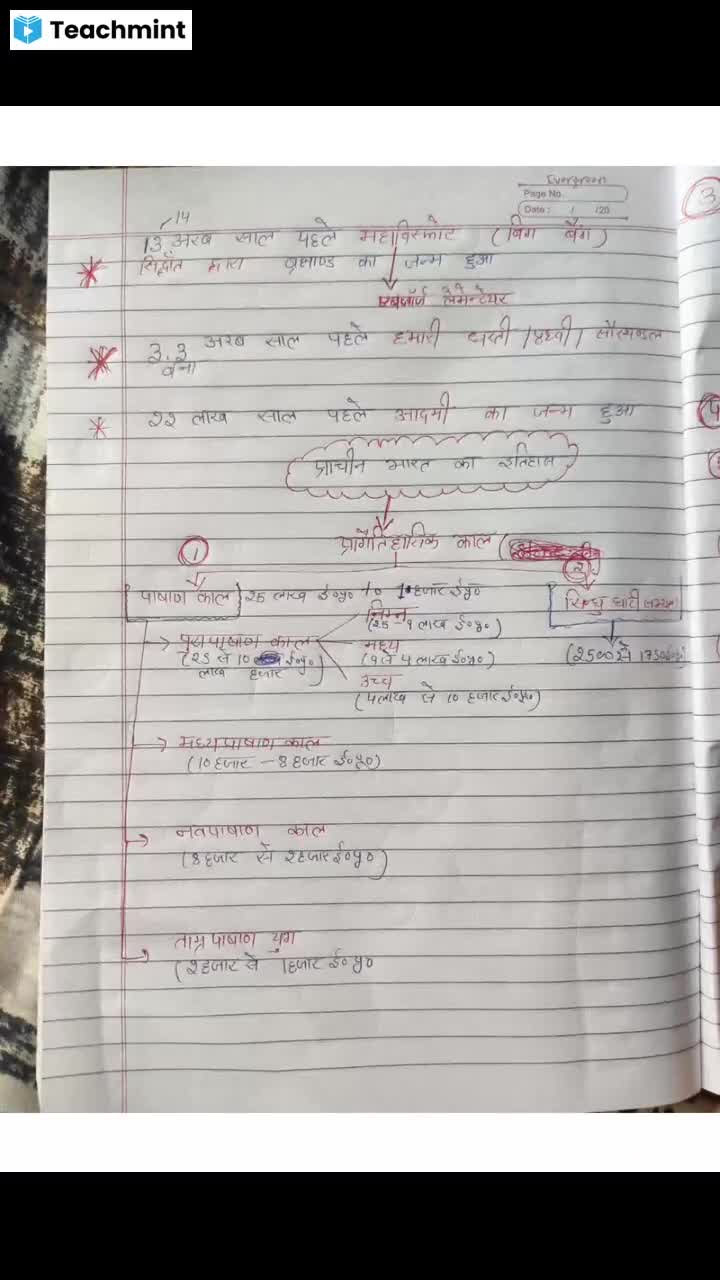 Teachmint
Evergreen
Page No.
Date : / /20
3
14
13 अरब साल पहले महाविस्फोट (बिग बैंग)
सिद्धांत द्वारा ब्रह्माण्ड का जन्म हुआ
जॉर्ज लेमेन्टेयर
3.3 अरब साल पहले हमारी धरती / पृथ्वी / सौरमण्डल
बना
22 लाख साल पहले आदमी का जन्म हुआ
प्राचीन भारत का इतिहास
1 प्रागैतिहासिक काल (
2
पाषाण काल 25 लाख ई०पू० to 1 हजार ई०पू० सिन्धु घाटी सभ्यता
निम्न
(25 - 9 लाख ई०पू०)
पुरापाषाण काल मध्य
(25 से 10 ई०पू०) (9 से 4 लाख ई०पू०) (2500 से 1750 ई०पू०)
लाख हजार उच्च
(4 लाख से 10 हजार ई०पू०)
मध्यपाषाण काल
(10 हजार - 8 हजार ई०पू०)
नवपाषाण काल
(8 हजार से 2 हजार ई०पू०)
ताम्रपाषाण युग
(2 हजार से 1 हजार ई०पू०